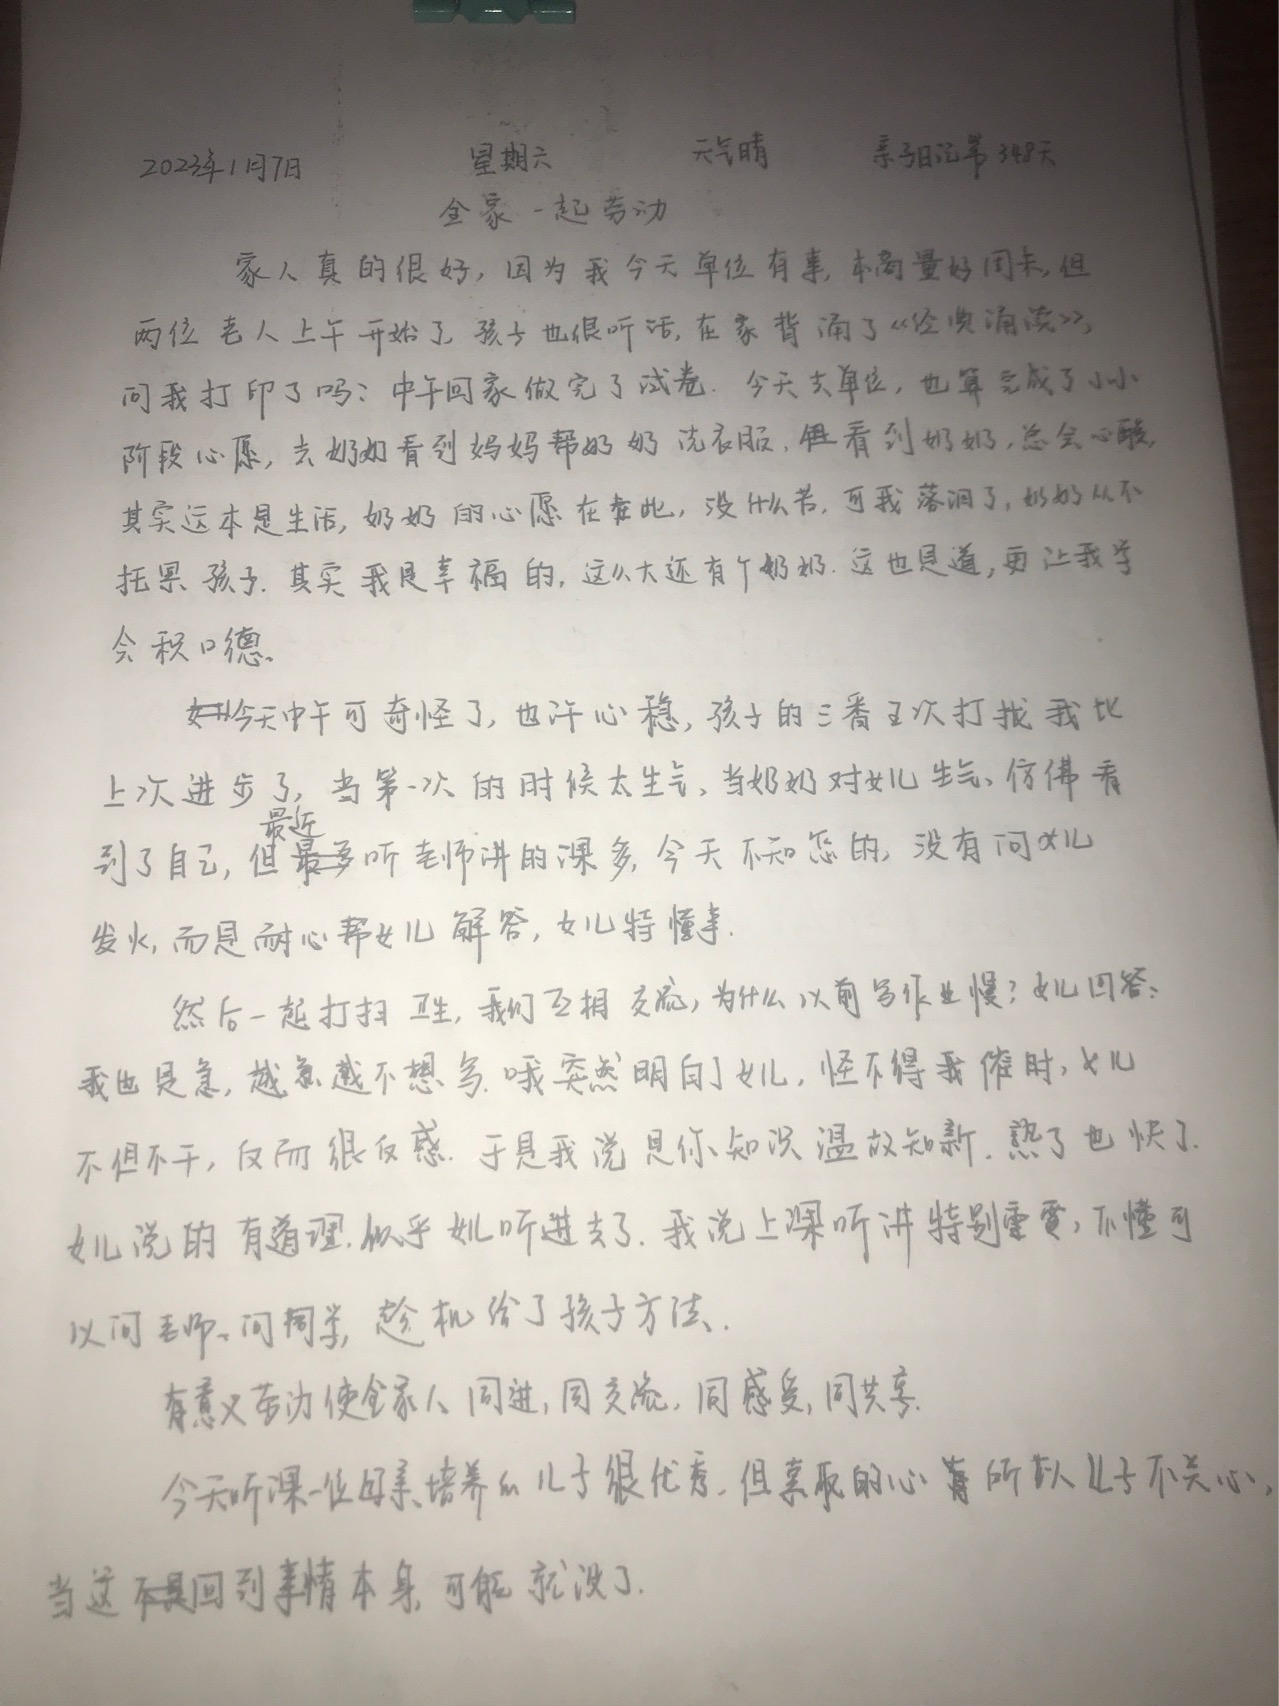 2023年1月7日 星期六 天气晴 亲子日记第348天
全家一起劳动
家人真的很好,因为我今天单位有事,本商量好周末,但
两位老人上午开始了,孩子也很听话,在家背诵了《经典诵读》,
问我打印了吗?中午回家做完了试卷.今天去单位,也算完成了小小
阶段心愿,去奶奶看到妈妈帮奶奶洗衣服,看到奶奶,总会心酸,
其实这本是生活,奶奶的心愿在此,没什么苦,可我落泪了,奶奶从不
托累孩子.其实我是幸福的,这么大还有个奶奶.这也是道,更让我学
会积口德。
今天中午可奇怪了,也许心稳,孩子的三番五次打扰我比
上次进步了,当第一次的时候太生气、当奶奶对女儿生气、仿佛看
到了自己,但最近听老师讲的课多,今天不知怎的,没有问女儿
发火,而是耐心帮女儿解答,女儿特懂事.
然后一起打扫卫生,我们互相交流,为什么以前写作业慢?女儿回答:
我也是急,越急越不想写.哦突然明白了女儿,怪不得我催时,女儿
不但不干,反而很反感.于是我说是你知识温故知新.熟了也快了.
女儿说的有道理.似乎女儿听进去了.我说上课听讲特别重要,不懂可
以问老师、问同学,趁机给了孩子方法、.
有意义劳动使全家人同进,同交流,同感受,同共享.
今天听课一位母亲培养的儿子很优秀.但索取的心 所 儿子不关心,
当这回到事情本身,可能就没了.